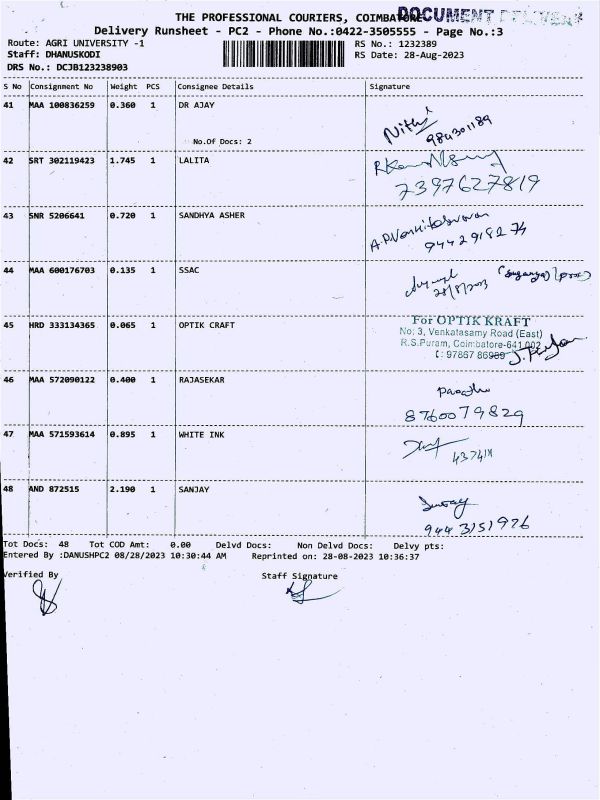 THE PROFESSIONAL COURIERS, COIMBATORE
DOCUMENT DELIVERY
Delivery Runsheet - PC2 - Phone No.:0422-3505555 - Page No.:3
Route: AGRI UNIVERSITY -1
RS No.: 1232389
Staff: DHANUSKODI
RS Date: 28-Aug-2023
DRS No.: DCJB123238903
S No Consignment No Weight PCS Consignee Details Signature
41 MAA 100836259 0.360 1 DR AJAY
No.Of Docs: 2
42 SRT 302119423 1.745 1 LALITA
7397627819
43 SNR 5206641 0.720 1 SANDHYA ASHER
9442918274
44 MAA 600176703 0.135 1 SSAC
28/8/2023
45 HRD 333134365 0.065 1 OPTIK CRAFT
For OPTIK KRAFT
No: 3, Venkatasamy Road (East)
R.S.Puram, Coimbatore-641 002
: 97867 86989
46 MAA 572090122 0.400 1 RAJASEKAR
8760079829
47 MAA 571593614 0.895 1 WHITE INK
48 AND 872515 2.190 1 SANJAY
Sanjay
9443151926
Tot Docs: 48 Tot COD Amt: 0.00 Delvd Docs: Non Delvd Docs: Delvy pts:
Entered By :DANUSHPC2 08/28/2023 10:30:44 AM Reprinted on: 28-08-2023 10:36:37
Verified By Staff Signature